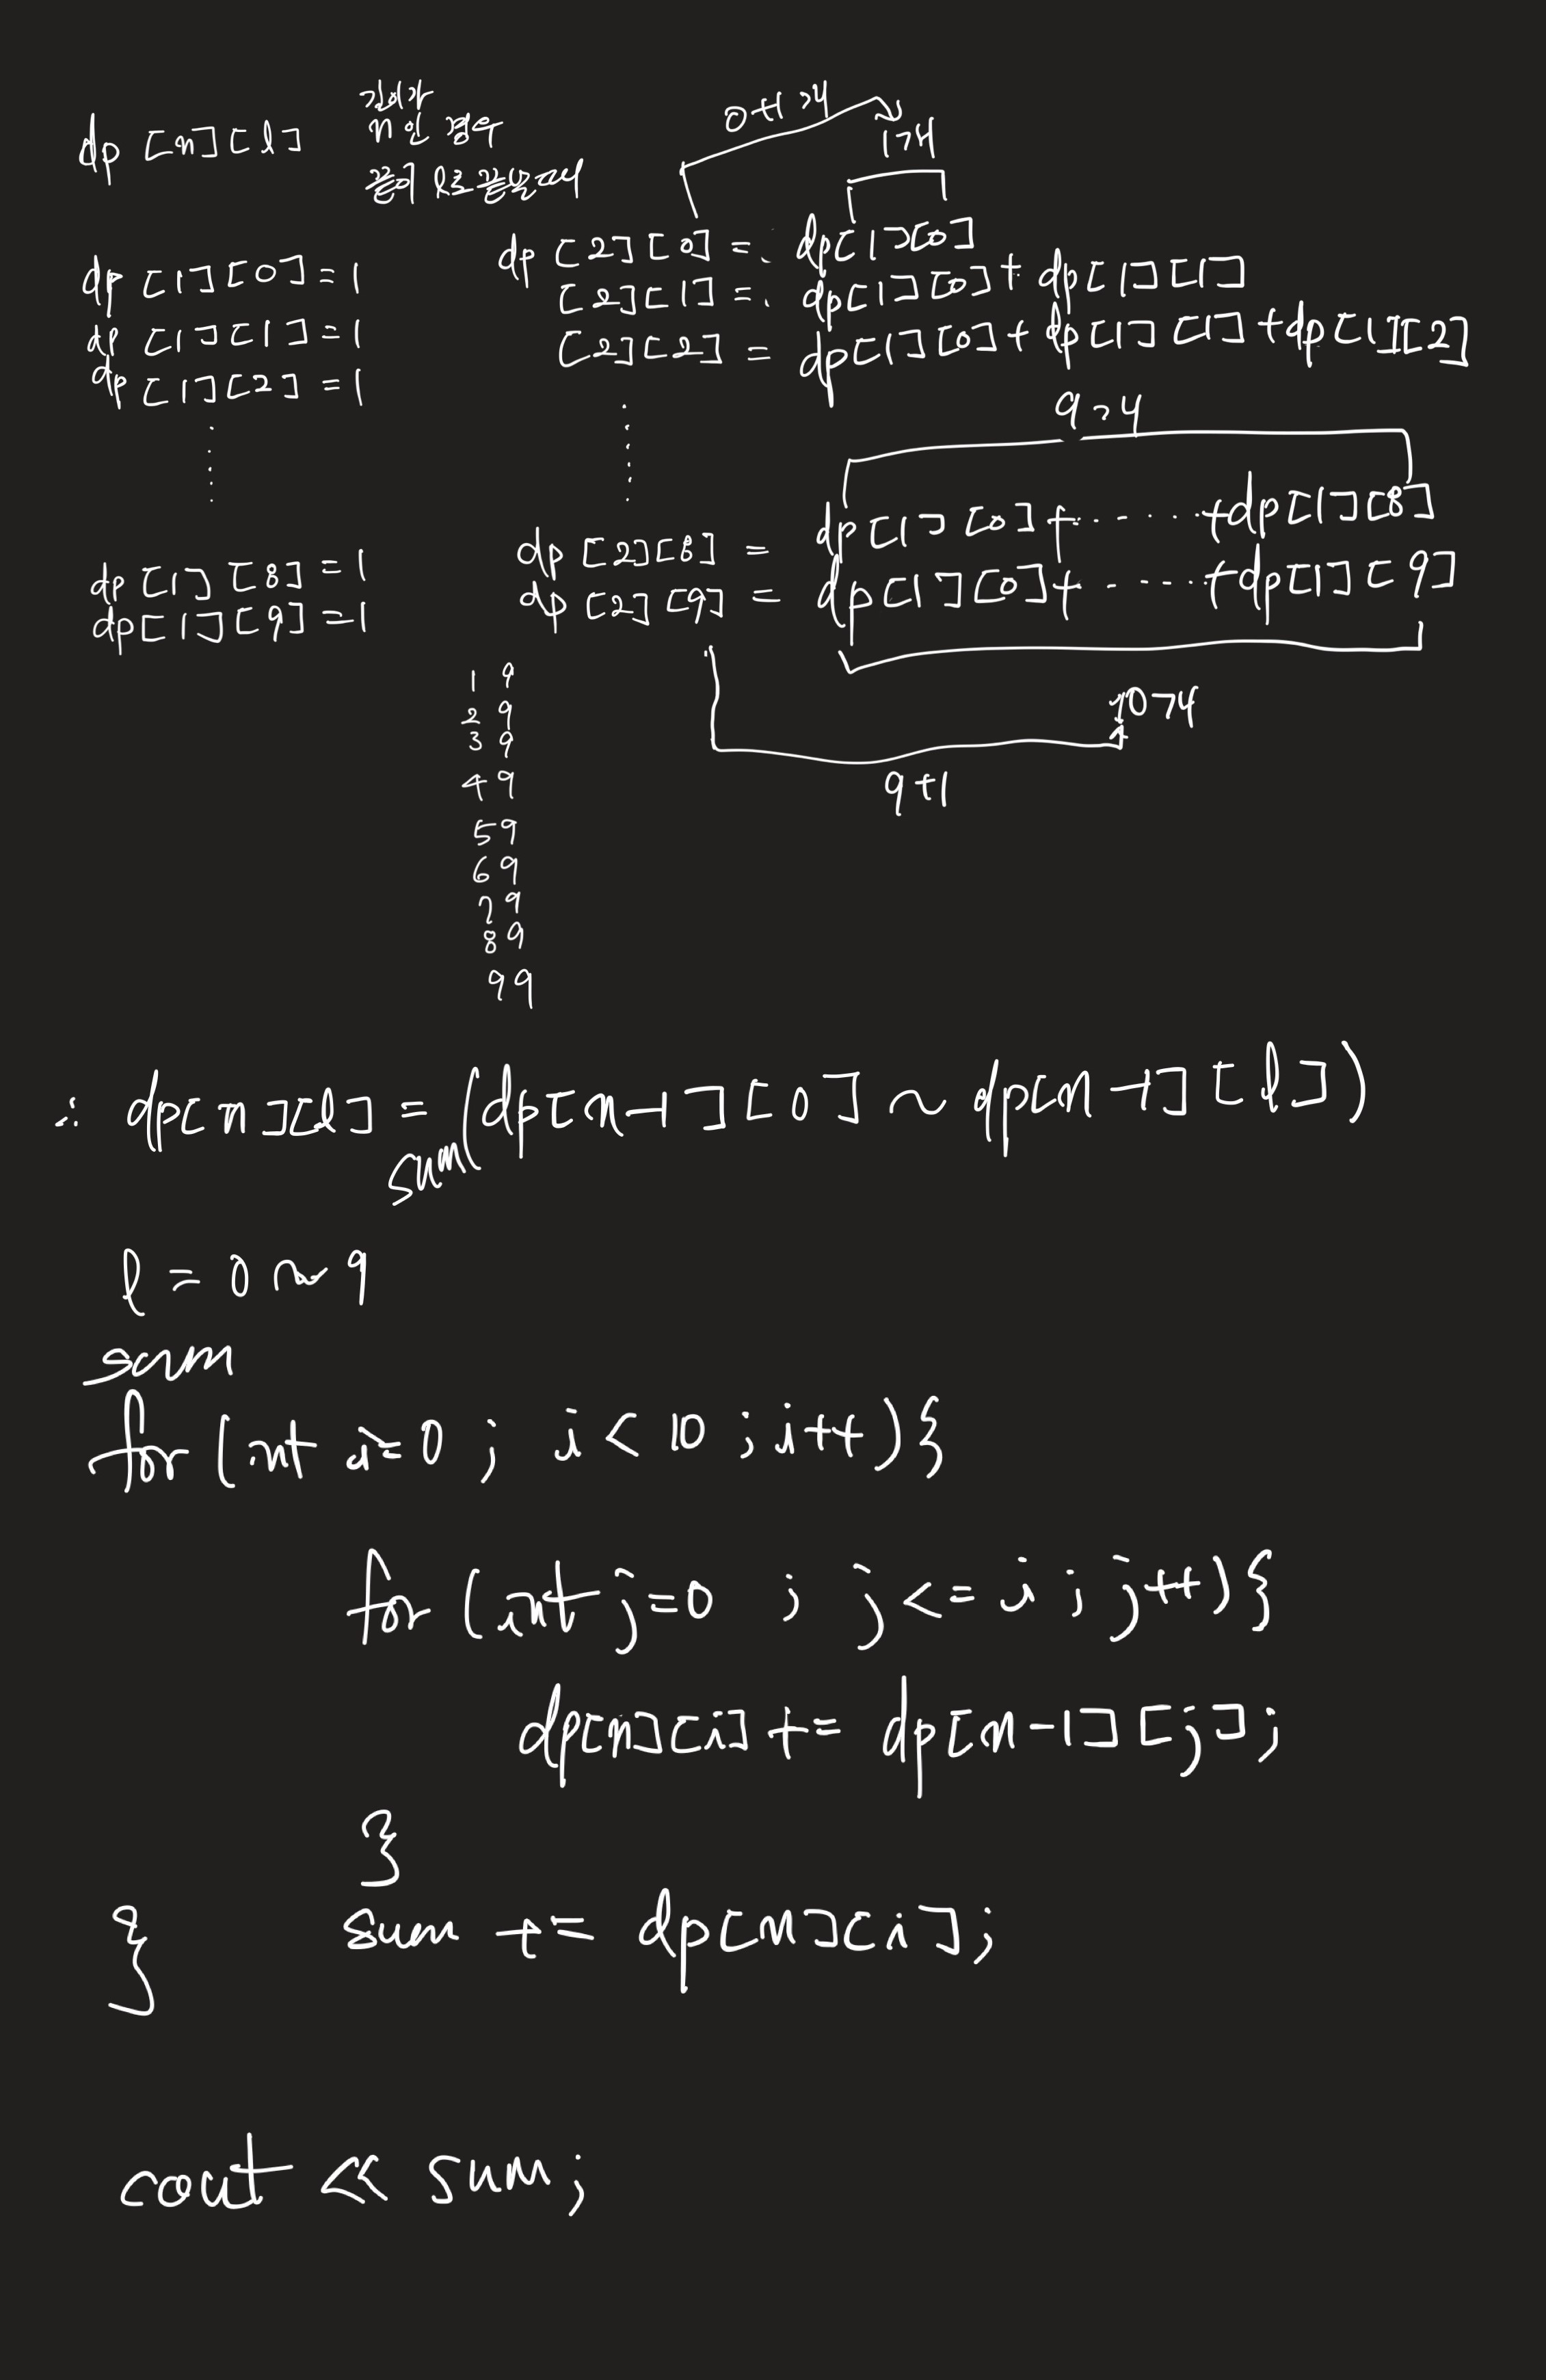 dp [n][l]
자리수
n이고
끝이 l로 끝날때
dp [1][0] = 1
dp [1][1] = 1
dp [1][2] = 1
dp [1][8] = 1
dp [1][9] = 1
0+1개
1개
dp [2][0] = dp[1][0]
[2][1] = dp[1][0] + dp[1][1]
[2][2] = dp[1][0] + dp[1][1] + dp[1][2]
9개
dp [2][8] = dp[1][0] + ...... + dp[1][8]
dp [2][9] = dp[1][0] + ...... + dp[1][9]
10개
9+1
1 9
2 9
3 9
4 9
5 9
6 9
7 9
8 9
9 9
∴ dp[n][l] = sum(dp[n-1][0] ~ dp[n-1][l])
l = 0 ~ 9
sum
for (int i=0 ; i < 10 ; i++){
for (int j=0 ; j <= i ; j++){
dp[n][i] += dp[n-1][j];
}
sum += dp[n][i];
}
cout << sum;